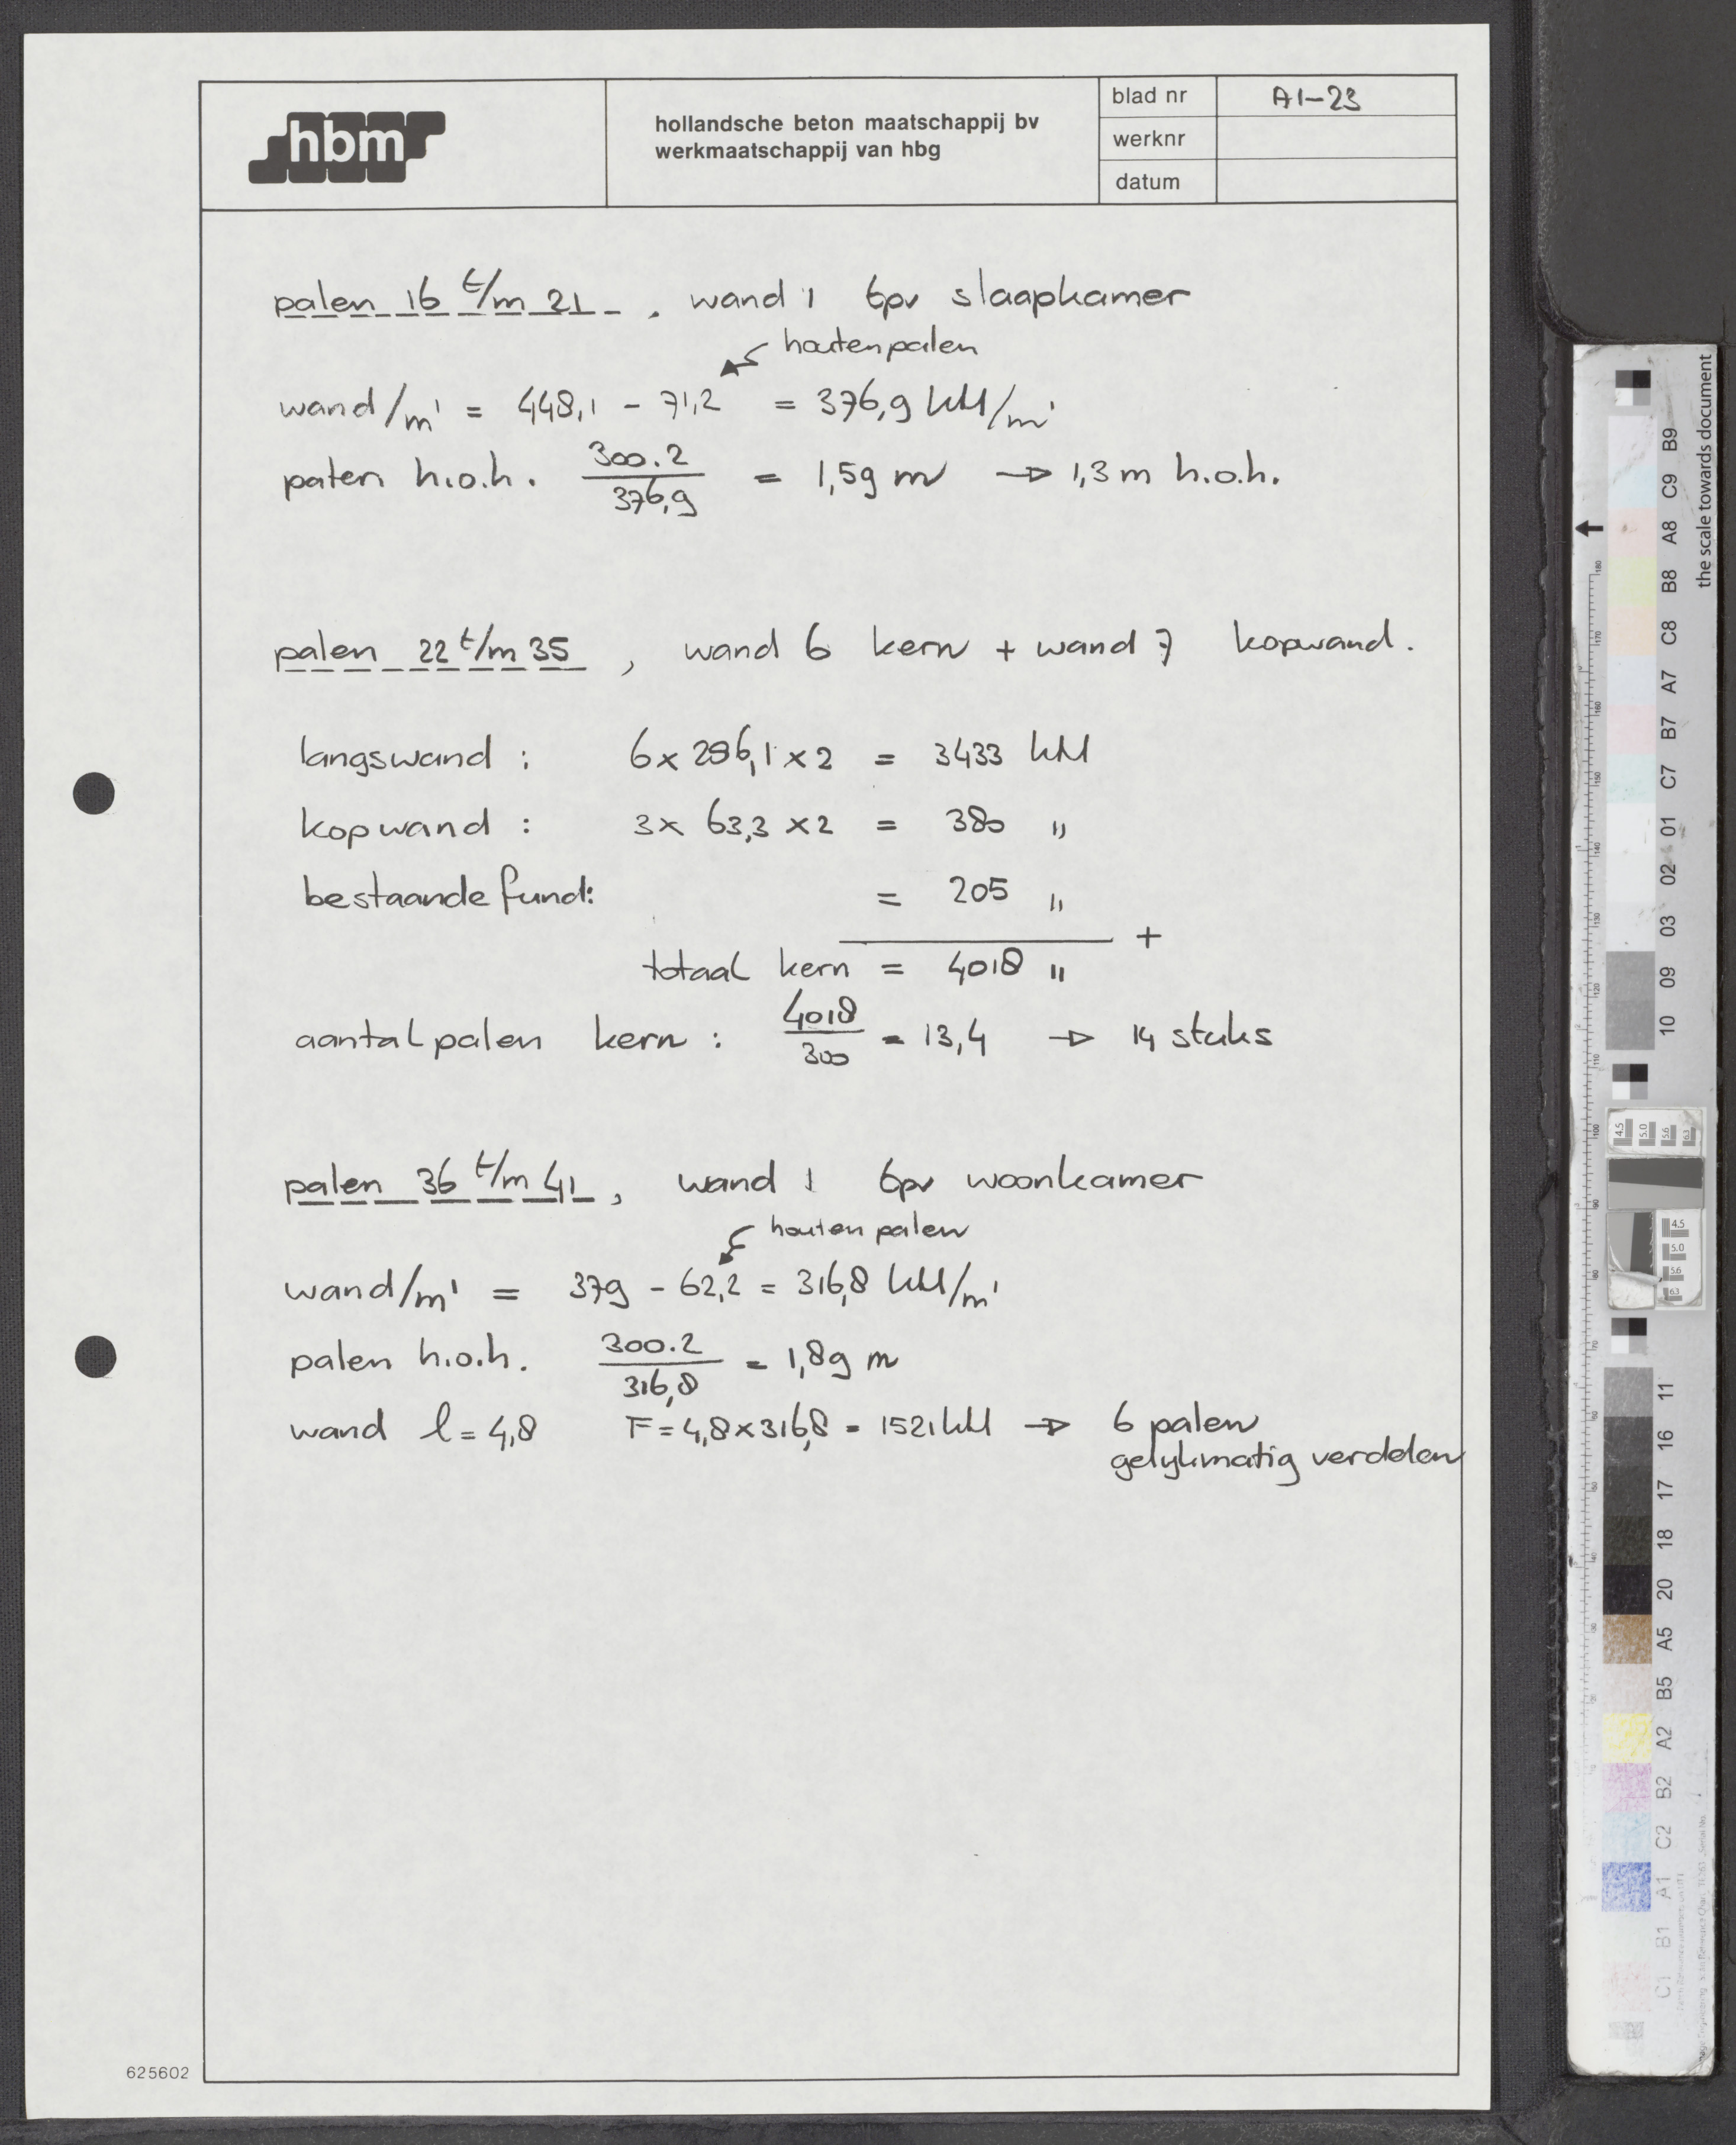 hbm
hollandsche beton maatschappij bv
werkmaatschappij van hbg
blad nr A1-23
werknr
datum
palen 16 t/m 21 , wand 1 tpv slaapkamer
houten palen
wand/m' = 448,1 - 71,2 = 376,9 kN/m'
palen h.o.h. 300.2/376,9 = 1,59 m → 1,3 m h.o.h.
palen 22 t/m 35 , wand 6 kern + wand 7 kopwand.
langswand : 6 x 286,1 x 2 = 3433 kN
kopwand : 3 x 63,3 x 2 = 380 "
bestaande fund: = 205 "
+
totaal kern = 4018 "
aantal palen kern : 4018/300 = 13,4 → 14 stuks
palen 36 t/m 41 , wand 1 tpv woonkamer
houten palen
wand/m' = 379 - 62,2 = 316,8 kN/m'
palen h.o.h. 300.2/316,8 = 1,89 m
wand l = 4,8 F = 4,8 x 316,8 = 1521 kN → 6 palen
gelykmatig verdelen
625602
the scale towards document
B9
C9
A8
B8
C8
A7
B7
C7
01
02
03
09
10
11
16
17
18
20
A5
B5
A2
B2
C2
A1
B1
C1